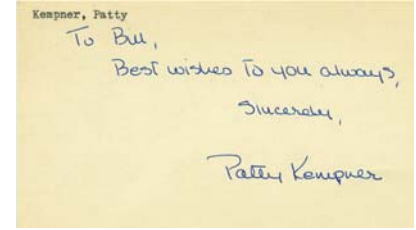 Kempner, Patty
To Bill,
Best wishes To you always,
Sincerely,
Patty Kempner